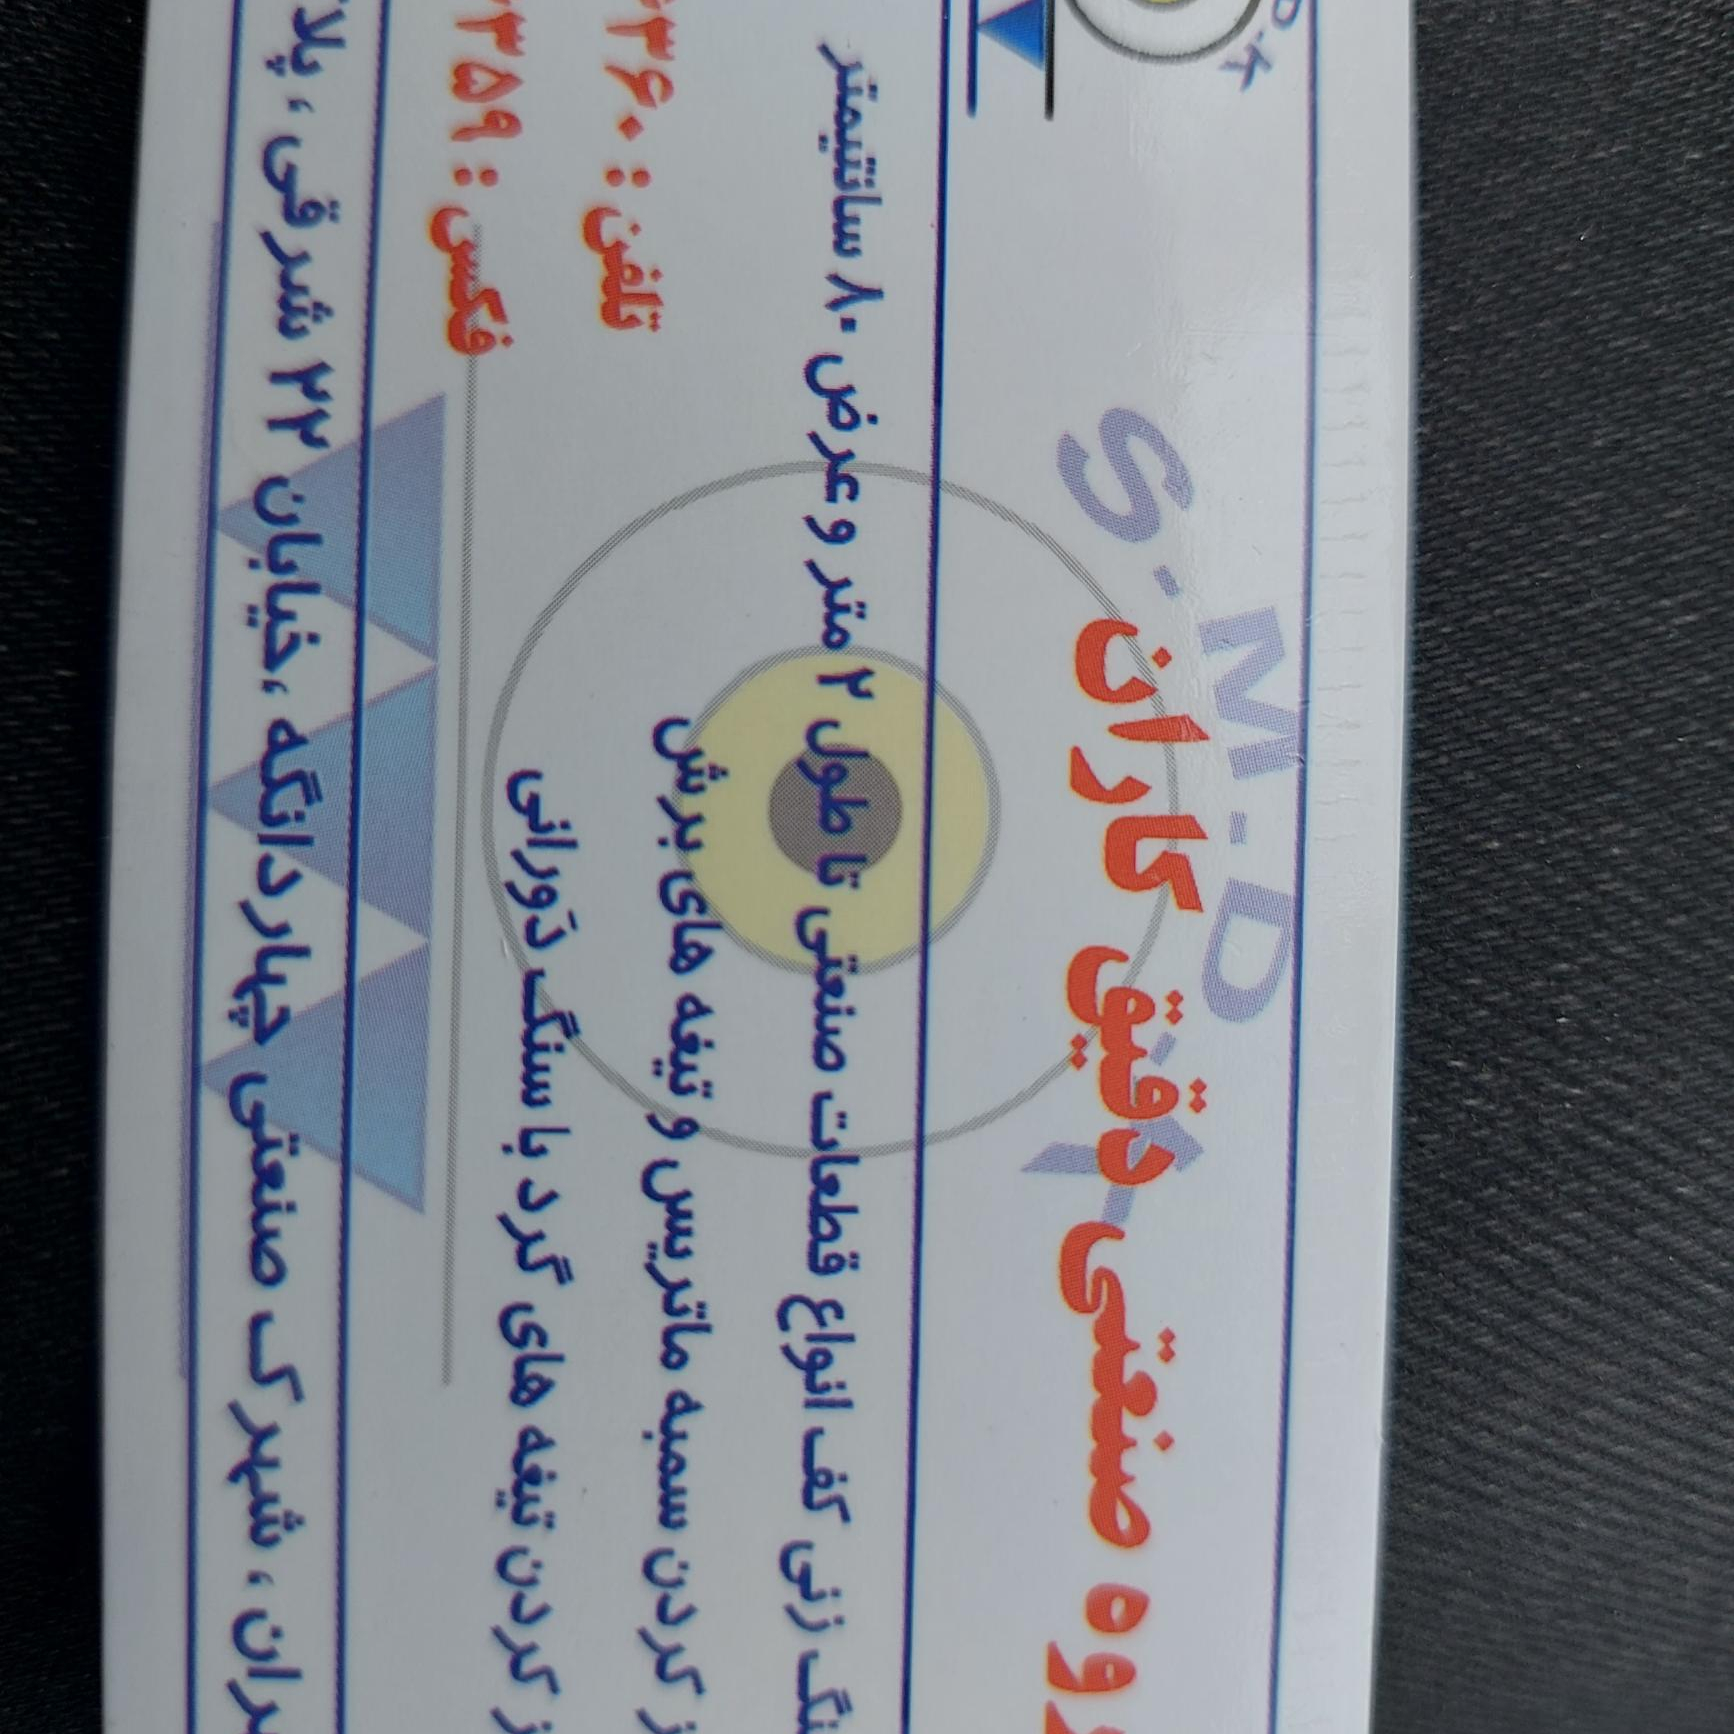 S.M.D.K
D.K
صنعتی دقیق کاران
کف انواع قطعات صنعتی تا طول ۲ متر و عرض ۸۰ سانتیمتر
کردن سمبه ماتریس و تیغه های برش
کردن تیغه های گرد با سنگ دَورانی
تلفن : ۳۶۰
فکس : ۳۵۹
شهرک صنعتی چهاردانگه ، خیابان ۲۲ شرقی ،